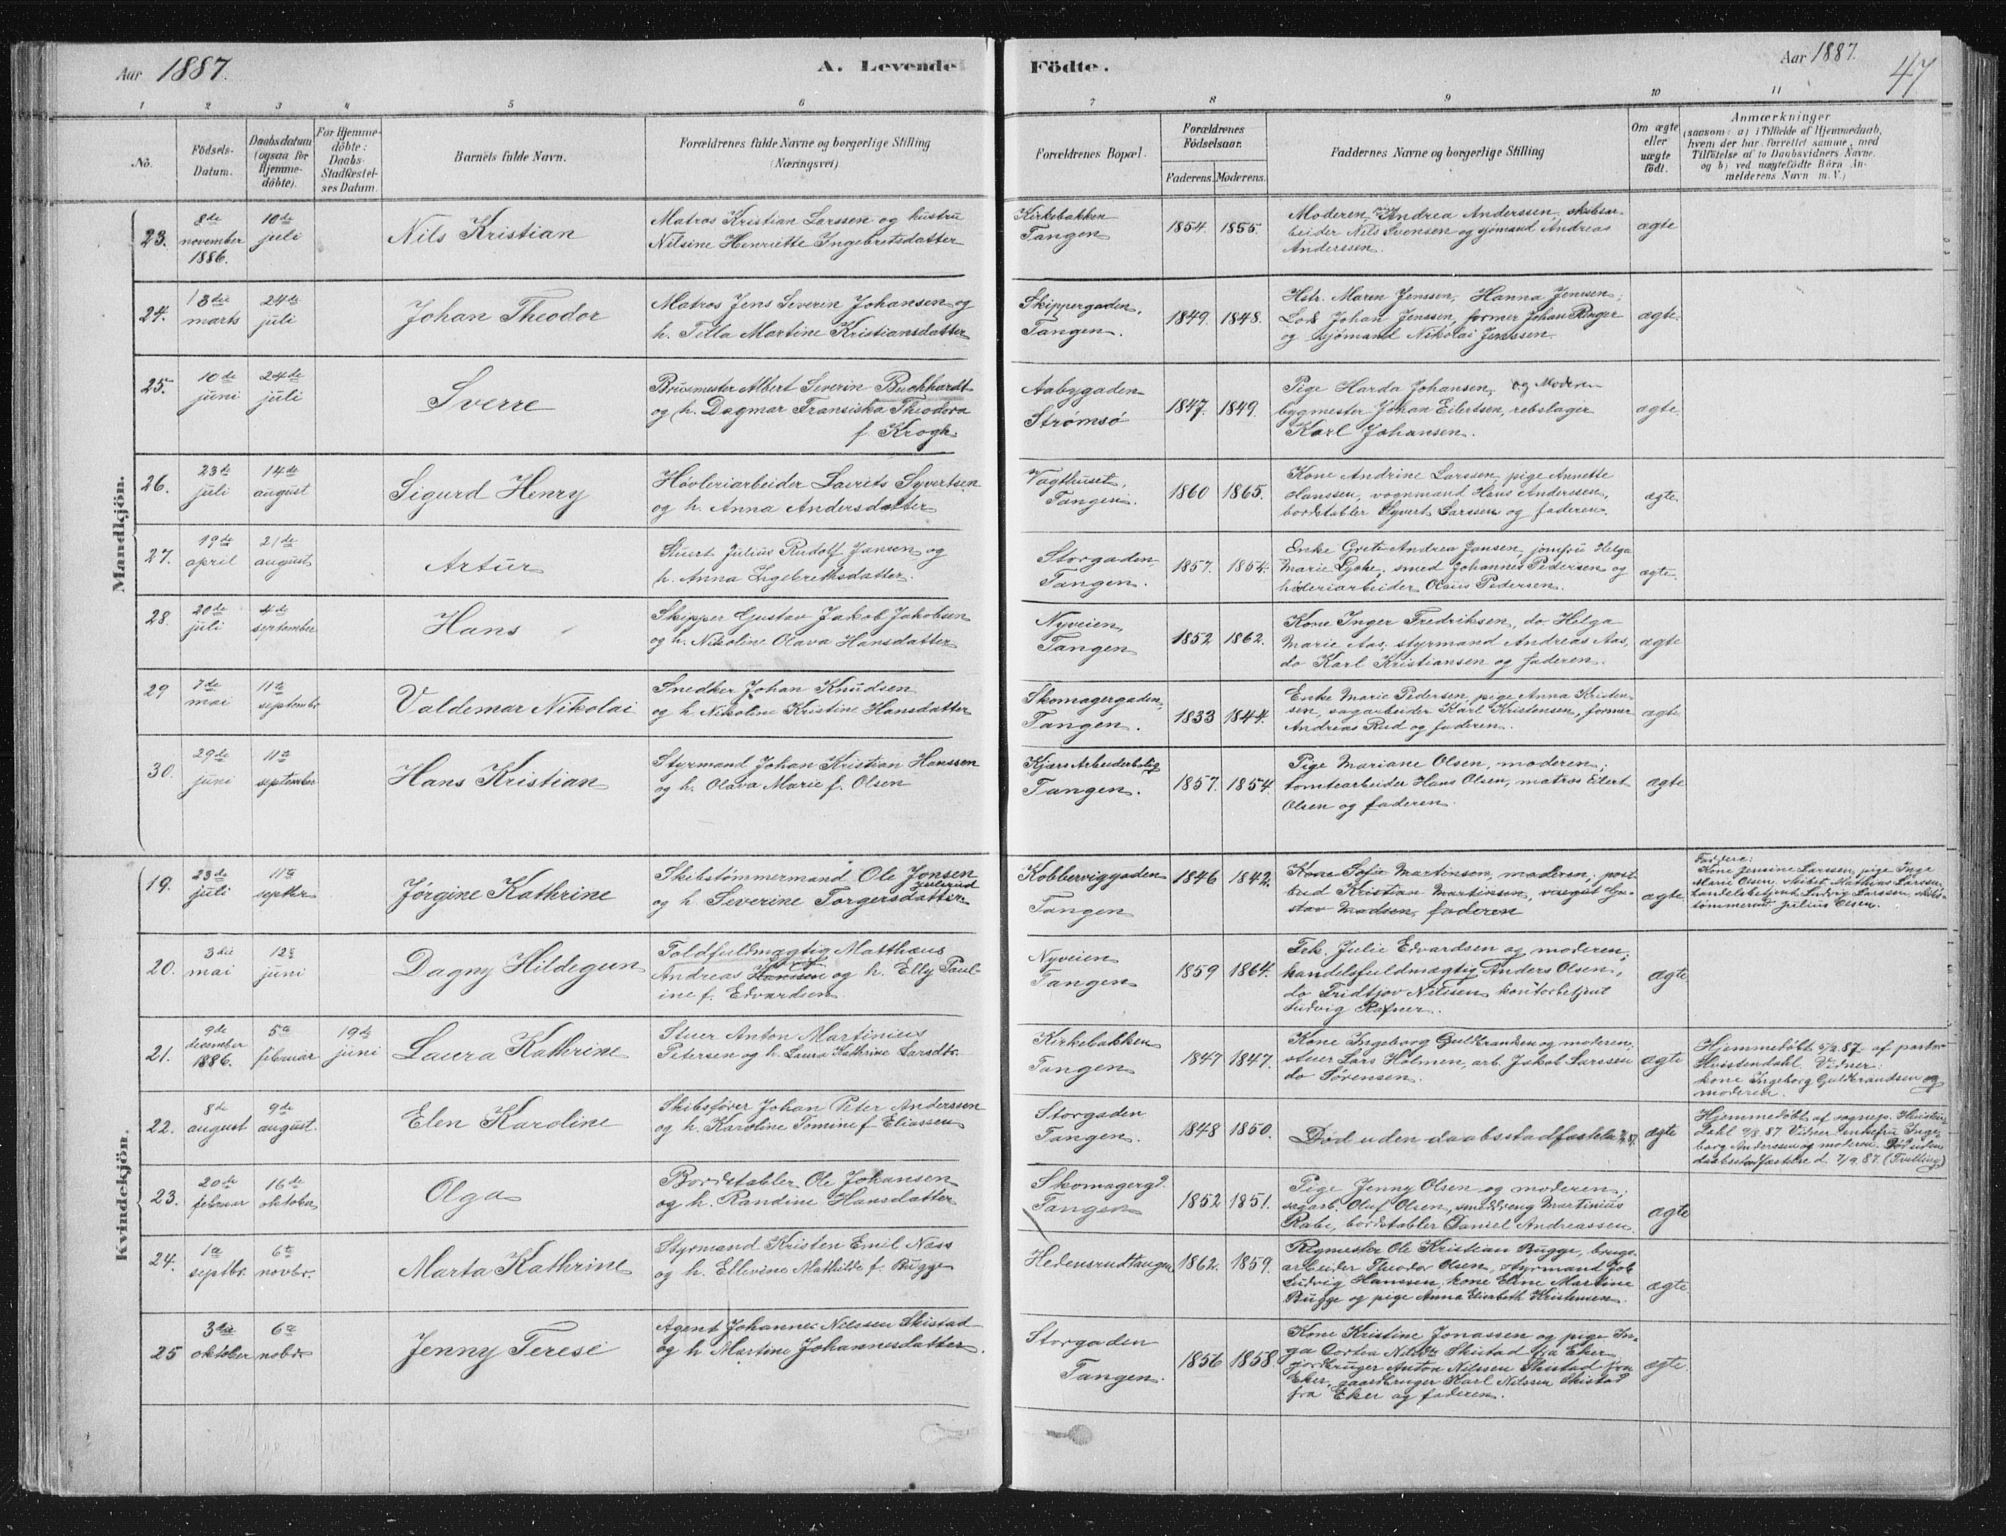 Aar 1887.
A. Levende Födte.
Aar 1887.
47
1 2 3 4 5 6 7 8 9 10 11
No.
Födsels-
Datum.
Daabsdatum
(ogsaa for
Hjemme-
döbte).
For Hjemme-
döbte:
Daabs-
Stadfæstel-
ses Datum.
Barnets fulde Navn.
Forældrenes fulde Navne og borgerlige Stilling
(Næringsvei)
Forældrenes Bopæl.
Forældrenes
Födselsaar.
Faderens. Moderens.
Faddernes Navne og borgerlige Stilling
Om ægte
eller
uægte
födt.
Anmærkninger
(saasom: a) i Tilfælde af Hjemmedaab,
hvem der har forrettet samme, med
Tilföielse af to Daabsvidners Navne.
og b) ved uægtefödte Börn An-
melderens Navn m. V.)
Mandkjön.
23.
8de
november
1886.
10de
juli
Nils Kristian
Matros Kristian Larssen og hustru
Nilsine Henriette Ingebretsdatter
Kirkebakken
Tangen
1854. 1855.
Moderen, Andrea Anderssen, skibsar-
beider Nils Svensen og sjømand Andreas
Anderssen.
ægte
24.
marts
24de
juli
Johan Theodor
Matros Jens Severin Johansen og
h. Tilla Martine Kristiansdatter
Skippergaden,
Tangen.
1849. 1848.
Hstr. Maren Jenssen, Hanna Jenssen;
Lods Johan Jenssen, former Johan Ringer
og sjömand Nikolai Jenssen.
ægte.
25.
10de
juni
24de
juli
Sverre
Brusmester Albert Severin Buchhardt
og h. Dagmar Fransiska Theodora
f. Krogh.
Aabygaden
Strømsø
1847. 1849.
Pige Harda Johansen, og Moderen
bygmester Johan Eilertsen, rebslager
Karl Johansen.
ægte.
26.
23de
juli
14de
august
Sigurd Henry
Høvleriarbeider Lavrits Syvertsen
og h. Anna Andersdatter
Vagthuset,
Tangen.
1860 1865.
Kone Andrine Larssen, pige Annette
Hanssen, vognmand Hans Anderssen,
bordstabler Syvert Larssen og faderen.
ægte.
27.
19de
april
21de
august
Artur
Stuert Julius Rudolf Jansen og
h. Anna Ingebretsdatter.
Storgaden
Tangen.
1857. 1854.
Enke Grete Andrea Jansen, jomfru Helga
Marie Lycke, smed Johannes Pedersen og
høvleriarbeider Olaus Pedersen.
ægte.
28.
20de
juli
4de
september
Hans
Skipper Gustav Jakob Jakobsen
og h. Nikoline Olava Hansdatter
Nyveien
Tangen
1852 1862.
Kone Inger Fredriksen, do Helga
Marie Aas, styrmand Andreas Aas,
do Karl Kristiansen og faderen.
ægte
29
7de
mai
11te
septembr
Valdemar Nikolai
Snedker Johan Knudsen
og h. Nikoline Kristine Hansdatter
Skomagergaden,
Tangen.
1833 1844.
Enke Marie Pedersen, pige Anna Kristen-
sen, sagarbeider Karl Kristensen, former
Andreas Rud og faderen.
ægte
30.
29de
juni
11te
september
Hans Kristian
Styrmand Johan Kristian Hanssen
og h. Olava Marie f. Olsen
Kjærs Arbeiderbolig
Tangen.
1857. 1854.
Pige Mariane Olsen, moderen;
tomtearbeider Hans Olsen, matros Eilert
Olsen og faderen.
ægte
Kvindekjön.
19.
23de
juli
11te
septbr
Jørgine Kathrine
Skibstømmermand Ole Jonsen
og h. Severine Torgersdatter
Kobbervigsgaden
Tangen
1846 1842.
Kone Sofie Martinson, moderen; post-
bud Kristian Martinsen, Gu-
stav Madsen, faderen
ægte.
Faddere:
Kone Jensine Larssen, pige Inge
Marie Olsen, skibst. Mathias Larssen,
handelsbetjent Ludvig Larssen, skibs-
tømmerm. Julius Olsen.
20.
3die
mai
12e
juni
Dagny Hildegun
Toldfuldmægtig Matthæus
Andreas Hansen og h. Elly Paul-
ine f. Edvardsen
Nyveien
Tangen
1859 1864.
Frk. Julie Edvardsen og moderen;
handelsfuldmægtig Anders Olsen,
do Fridtjov Nilsen kontorbetjent
Ludvig Rafner.
ægte
21.
9de
december
1886.
5te
februar
19de
juni
Laura Kathrine
Stuer Anton Martinius
Petersen og h. Laura Kathrine Larsdtr.
Kirkebakken
Tangen
1847 1847.
Kone Ingeborg Guldbrandsen og moderen;
stuer Lars Holmen, arb. Jakob Larssen
do Sørensen.
ægte
Hjemmedøbt 5/2 87 af pastor
Hvistendahl. Vidner:
kone Ingeborg Guldbrandsen og
moderen.
22.
8de
august
9de
august.
Elen Karoline
Skibsfører Johan Peter Anderssen
og h. Karoline Tomine f. Eliassen
Storgaden
Tangen.
1848 1850.
Død uden daabsstadfæstelse
ægte
Hjemmedøbt af sognep. Hvisten-
dahl 9/8 87 Vidner enkefru Inge-
borg Anderssen og moderen. Død uden
daabsstadfæstelse d. 7/9 87. (Tvilling)
23.
20de
februar
16de
oktober
Olga
Bordstabler Ole Johansen
og h. Randine Hansdatter
Skomagergd.
Tangen
1852 1851.
Pige Jenny Olsen og moderen;
sagarb. Oluf Olsen, smeddreng Martinius
Rabe, bordstabler Daniel Andreassen.
ægte
24.
1te
septbr.
6te
novbr.
Marta Kathrine
Styrmand Kristen Emil Næss
og h. Ellevine Mathilde f. Bugge
Hedensrudtangen
1862. 1859.
Rigmester Ole Kristian Bugge, brugs-
arbeider Theodor Olsen, styrmand Job
Ludvig Hanssen, kone Eline Martine
Bugge og pige Anna Elisabeth Kristensen.
ægte
25
3die
oktober
6te
nobr
Jenny Terese
Agent Johannes Nilssen Skistad
og h. Martine Johannesdatter.
Storgaden
Tangen.
1856 1858
Kone Kristine Jonassen og pige In-
ga Dortea Nilsdtr Skistad fra Eker
jordbruger Anton Nilssen Skistad fra
Eker, gaardbruger Karl Nilssen Skistad
fra Eker og faderen.
ægte